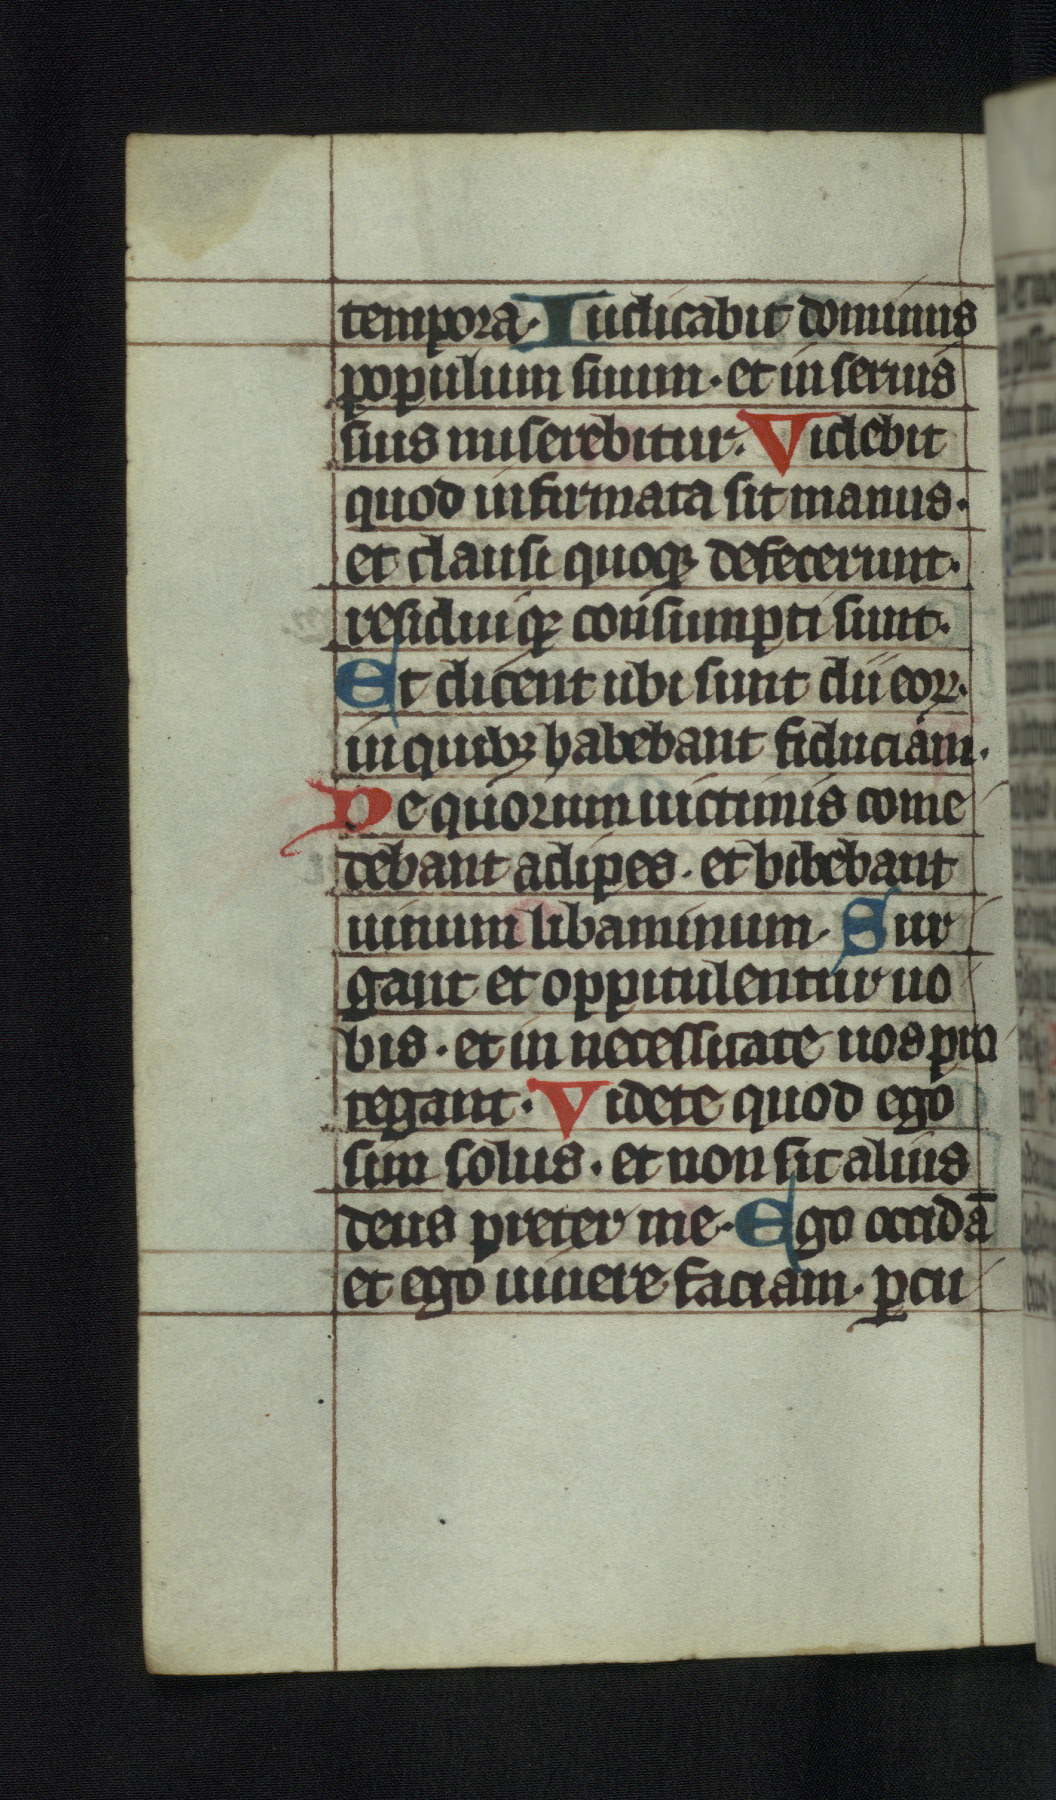 tempora. Iudicabit dominus
populum suum. et in seruis
suis miserebitur. Videbit
quod infirmata sit manus.
et clausi quoqꝫ defecerunt.
residuiqꝫ consumpti sunt.
Et dicent ubi sunt dii eoꝝ.
in quibꝫ habebant fiduciam.
De quorum uictimis come
debant adipes. et bibebant
uinum libaminum. Sur
gant et oppitulentur uo
bis. et in necessitate uos pro
tegant. Videte quod ego
sim solus. et non sit alius
deus preter me. Ego occidā
et ego uiuere faciam. ꝑcu